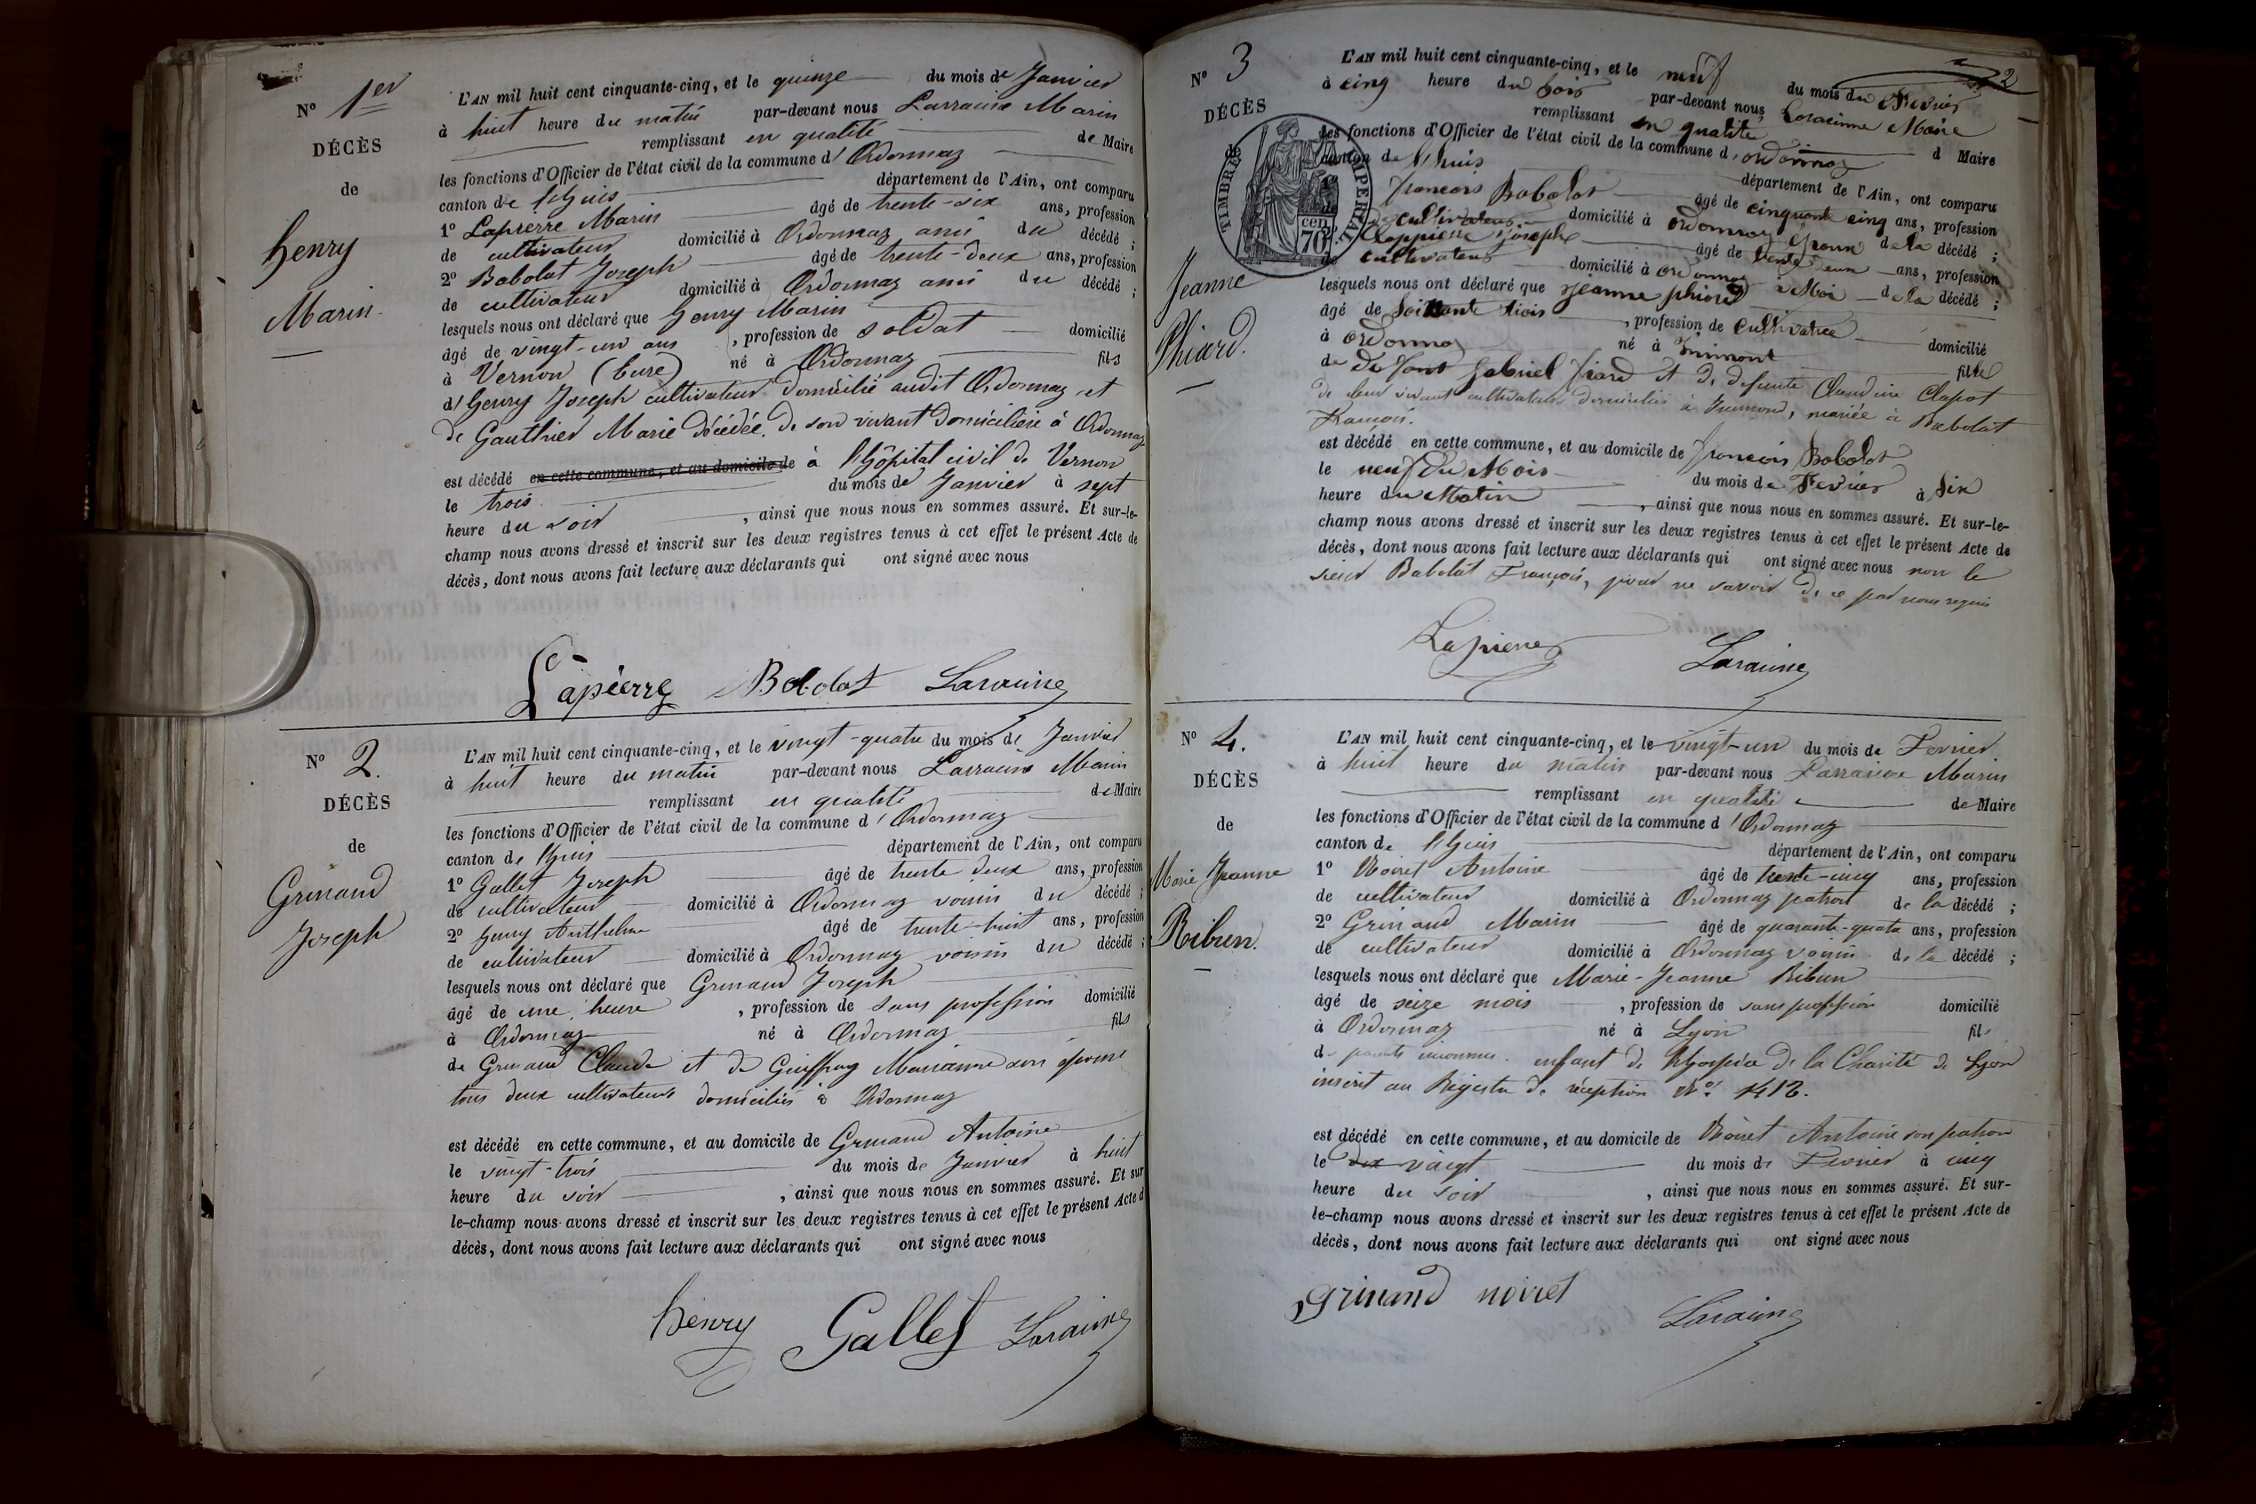 N° 1er
DÉCÈS
de
henry
Marin
L'AN mil huit cent cinquante-cinq, et le quinze du mois de Janvier
à huit heure du matin par-devant nous Larraine Marin
remplissant en qualité de Maire
les fonctions d'Officier de l'état civil de la commune d'Ordonnaz
canton de l'huis département de l'Ain, ont comparu
1° Lapierre Marin âgé de trente-six ans, profession
de cultivateur domicilié à Ordonnaz ami du décédé ;
2° Babolat Joseph âgé de trente-deux ans, profession
de cultivateur domicilié à Ordonnaz ami du décédé ;
lesquels nous ont déclaré que henry Marin
âgé de vingt-un ans, profession de soldat domicilié
à Vernon (Eure) né à Ordonnaz fils
d'henry Joseph cultivateur domicilié audit Ordonnaz et
de Gauthier Marie décédée, de son vivant domiciliée à Ordonnaz
est décédé en cette commune, et au domicile de à l'hôpital civil de Vernon
le trois du mois de Janvier à sept
heure du soir, ainsi que nous nous en sommes assuré. Et sur-le-
champ nous avons dressé et inscrit sur les deux registres tenus à cet effet le présent Acte de
décès, dont nous avons fait lecture aux déclarants qui ont signé avec nous
Lapierre Babolat Laraine
N° 2.
DÉCÈS
de
Grinand
Joseph
L'AN mil huit cent cinquante-cinq, et le vingt-quatre du mois de Janvier
à huit heure du matin par-devant nous Larraine Marin
remplissant en qualité de Maire
les fonctions d'Officier de l'état civil de la commune d'Ordonnaz
canton de l'huis département de l'Ain, ont comparu
1° Gallet Joseph âgé de trente deux ans, profession
de cultivateur domicilié à Ordonnaz voisin du décédé ;
2° henry Anthelme âgé de trente-huit ans, profession
de cultivateur domicilié à Ordonnaz voisin du décédé ;
lesquels nous ont déclaré que Grinand Joseph
âgé de une heure, profession de sans profession domicilié
à Ordonnaz né à Ordonnaz fils
de Grinand Claude et de Marianne son épouse
tous deux cultivateurs domiciliés à Ordonnaz
est décédé en cette commune, et au domicile de Grinand Antoine
le vingt-trois du mois de Janvier à huit
heure du soir, ainsi que nous nous en sommes assuré. Et sur
le-champ nous avons dressé et inscrit sur les deux registres tenus à cet effet le présent Acte d
décès, dont nous avons fait lecture aux déclarants qui ont signé avec nous
henry Gallet Laraine
2
N° 3
DÉCÈS
de
TIMBRE IMPERIAL
70 cen.
Jeanne
Phiard.
L'AN mil huit cent cinquante-cinq, et le neuf du mois du Fevrier
à cinq heure du Soir par-devant nous Marie
remplissant en qualité d Maire
les fonctions d'Officier de l'état civil de la commune d'ordonnaz
canton de l'huis département de l'Ain, ont comparu
francois Babolat âgé de cinquante cinq ans, profession
de cultivateur domicilié à ordonnaz époux de la décédé ;
Lappierre joseph âgé de ans, profession
de cultivateur domicilié à ordonnaz de la décédé ;
lesquels nous ont déclaré que jeanne phiord
âgé de soixante trois, profession de cultivatrice domicilié
à ordonnaz né à Inimont fille
de Gabriel et de defunte Claudine Clapot
de leur vivant cultivateurs domiciliés à Inimont, mariée à Babolat
François.
est décédé en cette commune, et au domicile de francois Babolat
le neuf du Mois du mois de Fevrier à Six
heure du Matin, ainsi que nous nous en sommes assuré. Et sur-le-
champ nous avons dressé et inscrit sur les deux registres tenus à cet effet le présent Acte de
décès, dont nous avons fait lecture aux déclarants qui ont signé avec nous non le
sieur Babolat François, pour ne savoir de ce par nous requis
Lapierre Laraine
N° 4.
DÉCÈS
de
Marie Jeanne
Ribun.
L'AN mil huit cent cinquante-cinq, et le vingt-un du mois de Fevrier
à huit heure du matin par-devant nous Larraine Marin
remplissant en qualité de Maire
les fonctions d'Officier de l'état civil de la commune d'Ordonnaz
canton de l'huis département de l'Ain, ont comparu
1° Noiret Antoine âgé de trente-cinq ans, profession
de cultivateur domicilié à Ordonnaz patron de la décédé ;
2° Grinand Marin âgé de quarante-quatre ans, profession
de cultivateur domicilié à Ordonnaz voisin de la décédé ;
lesquels nous ont déclaré que Marie-Jeanne Ribun
âgé de seize mois, profession de sans profession domicilié
à Ordonnaz né à Lyon fil
de parents inconnus. enfant de l'hospice de la Charité de Lyon
inscrit au Registre de réception N°
est décédé en cette commune, et au domicile de Noiret Antoine son patron
le dix vingt du mois de Fevrier à cinq
heure du soir, ainsi que nous nous en sommes assuré. Et sur-
le-champ nous avons dressé et inscrit sur les deux registres tenus à cet effet le présent Acte de
décès, dont nous avons fait lecture aux déclarants qui ont signé avec nous
grinand noiret Laraine